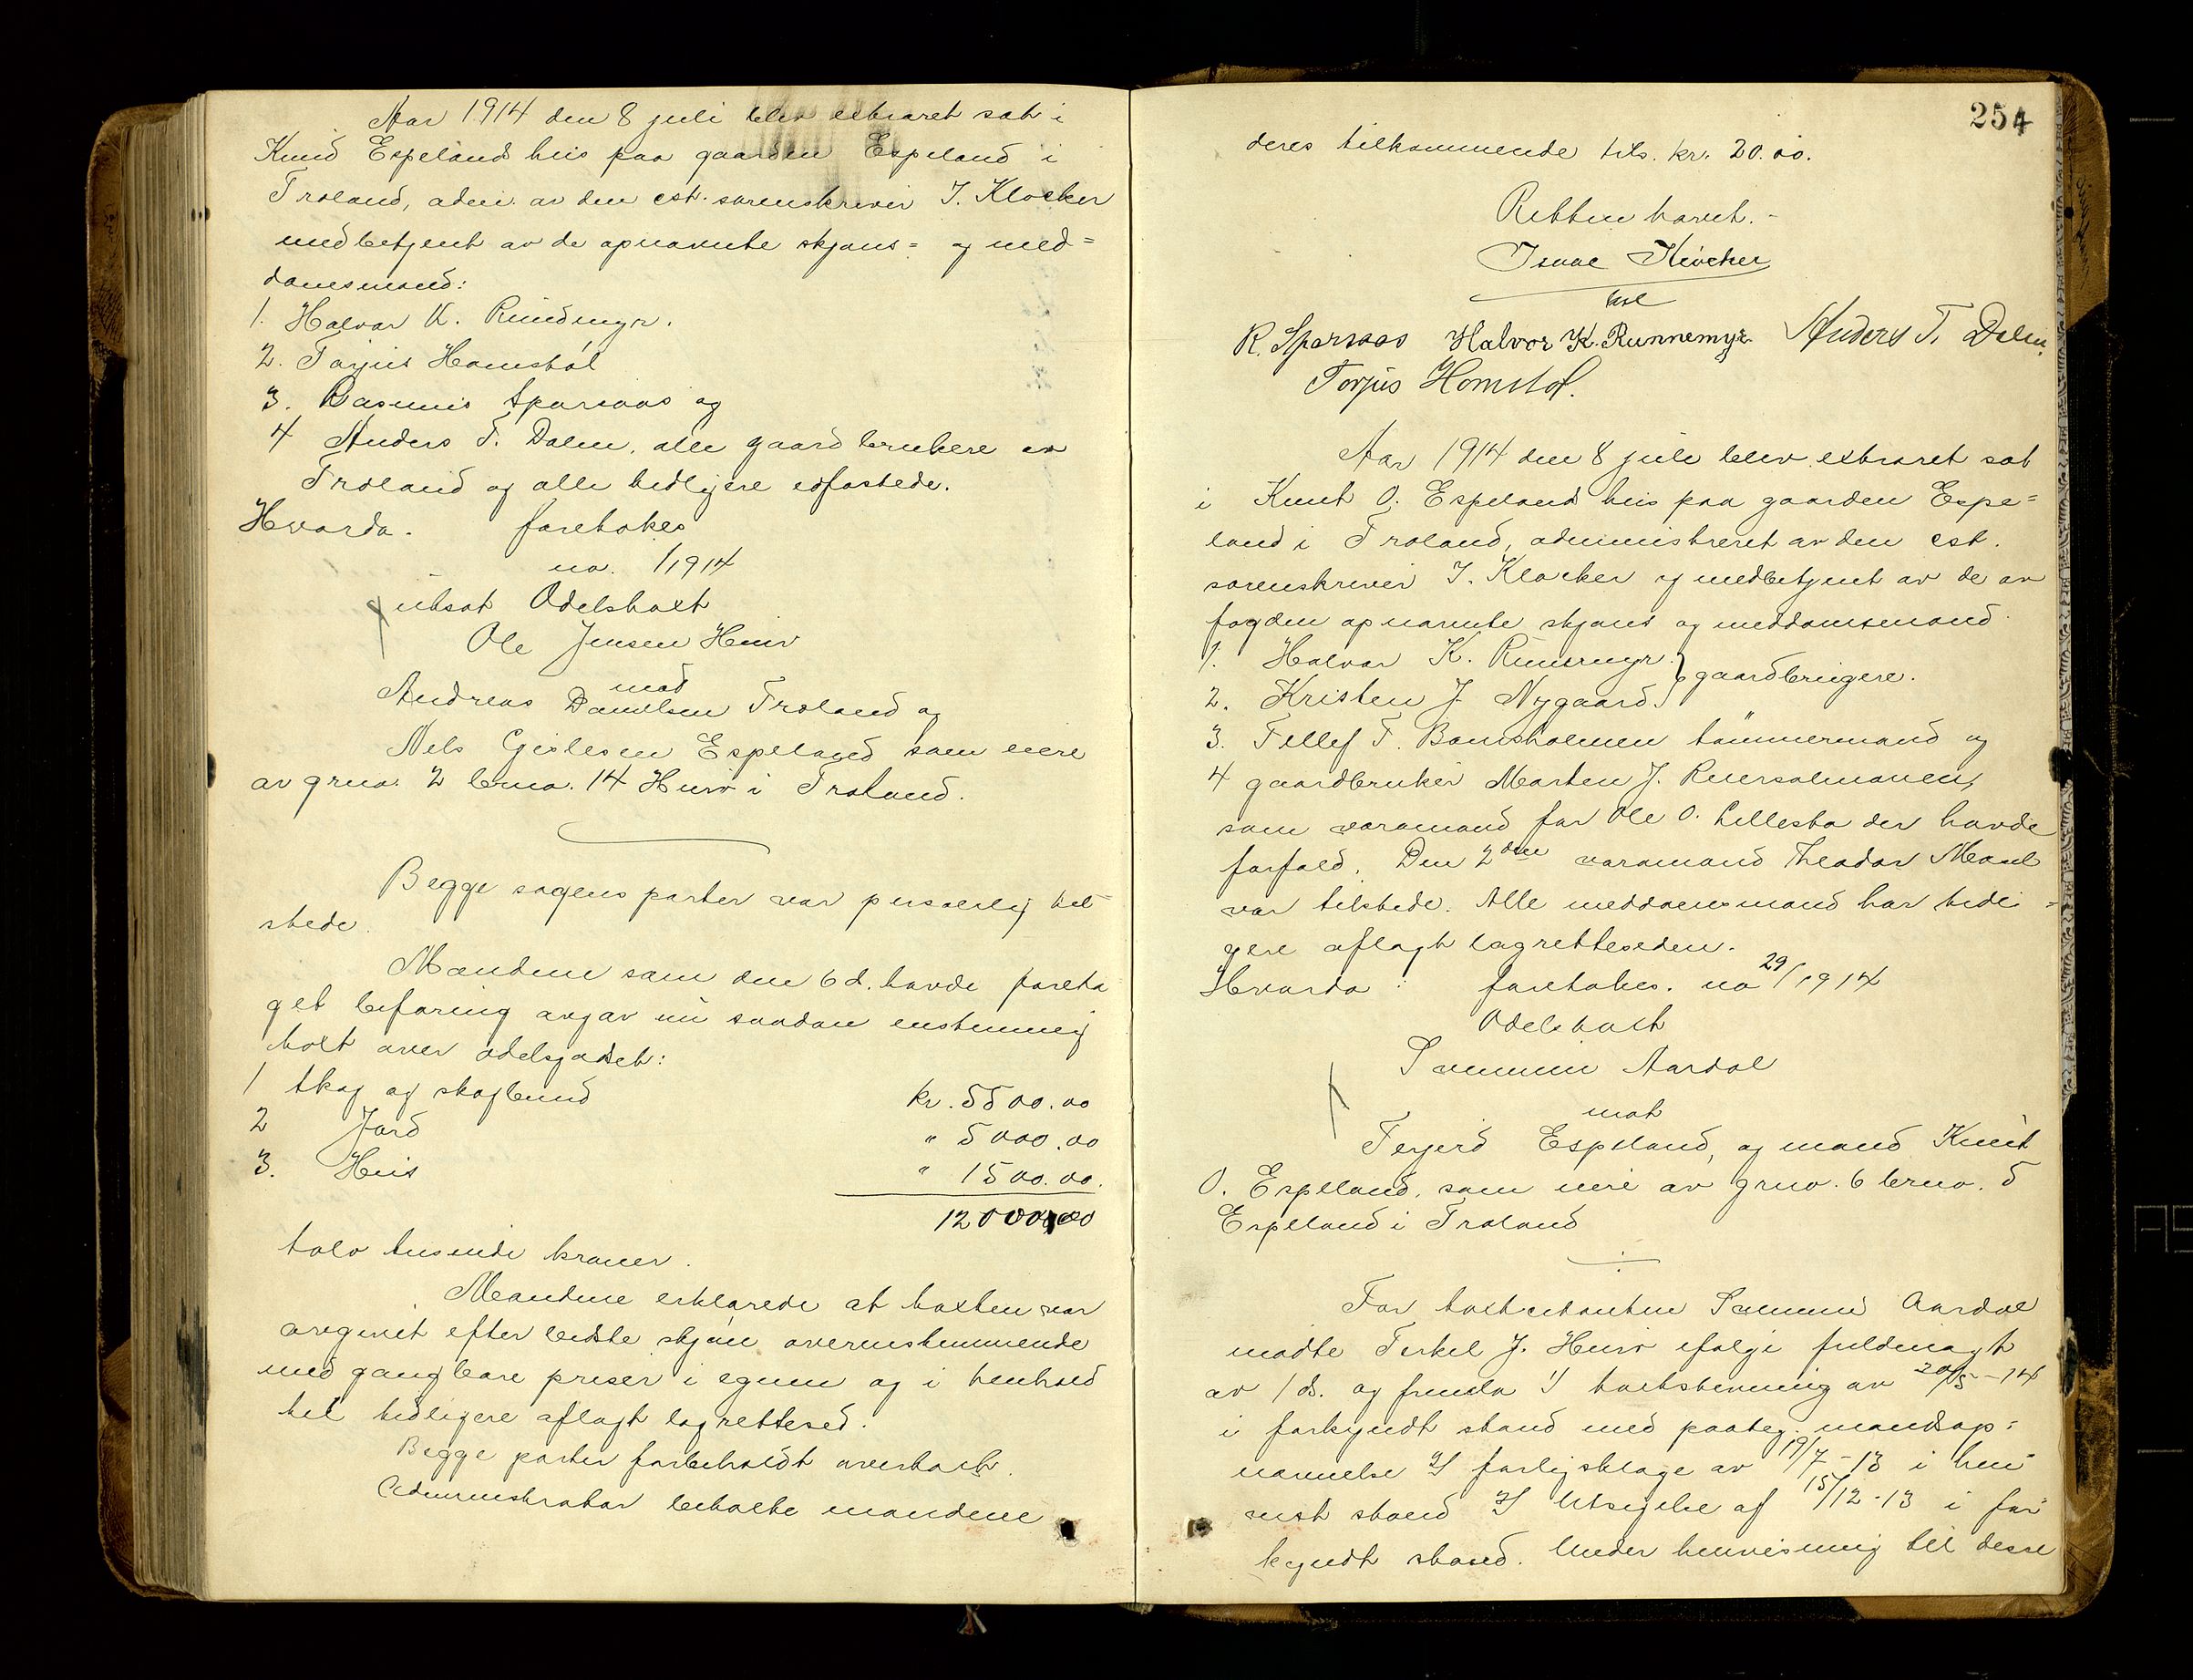 Aar 1914 den 8 juli blev extraret sat i
Knud Espelands hus paa gaarden Espeland i
Froland, adm. av den cst. sorenskriver I. Kløcker
medbetjent av de opnævnte skjøns= og med=
domsmænd:
1. Halvor K. Rundmyr.
2. Torjus Homstøl
3. Rasmus Sparsaas og
4 Anders T. Dalen, alle gaardbrukere av
Froland og alle tidligere edfæstede.
Hvorda. foretokes
no. 1/1914
utsat Odelstakt
Ole Jensen Hurv
mod
Andreas Danielsen Froland og
Nils Gjeslesen Espeland som eiere
av grno. 2 brno. 14 Hurv i Froland.
Begge sagens parter var personlig til=
stede.
Mændene som den 6 d. havde foreta
get befaring avgav nu saadan enstemmig
takst over odelsgodset:
1 Skog og skogbund kr. 5500.00
2 Jord " 5000.00
3. Hus " 1500.00.
12000.00
tolv tusende kroner.
Mændene erklærede at taxten var
avgivet efter bedste skjøn overensstemmende
med gangbare priser i egnen og i henhold
til tidligere aflagt lagrettesed.
Begge parter forbeholdt overtakst.
Administrator betalte mændene
254
deres tilkommende tils. kr. 20.00.
Retten hævet. -
Isaac Kløcker
kst
R. Sparsaas Halvor K. Runnemyr. Anders T. Dalen.
Torjus Homstøl.
Aar 1914 den 8 juli blev extraret sat
i Knut O. Espelands hus paa gaarden Espe=
land i Froland, administreret av den cst.
sorenskriver I. Kløcker og medbetjent av de av
fogden opnævnte skjøns og meddomsmænd.
1. Halvor K. Runemyr. } gaardbrugere.
2. Kristen J. Nygaard.
3. Tellef T. Bomsholmen tømmermand og
4 gaardbruker Morten J.
som varamand for Ole O. Lillesta der havde
forfald. Den 2den varamand Theodor Moseb
var tilstede. Alle meddomsmænd har tidli=
gere aflagt lagretteseden.
Hvorda : foretokes. no 29/1914
Odelstakst
Sammun Aardal
mot
Terjerd Espeland, og mand Knut
O. Espeland, som eiere av grno. 6 brno. 5
Espeland i Froland
For takstcitanten Sammun Aardal
mødte Terkel J. Hurv ifølge fuldmagt
av 1 ds. og fremla 1) takststevning av 20/5-14
i forkyndt stand med paateg. mandsop=
nævnelse 2) forligsklage av 19/7-13 i hen=
vist stand 3) Utsigelse af 15/12-13 i for=
kyndt stand. Under henvisning til disse